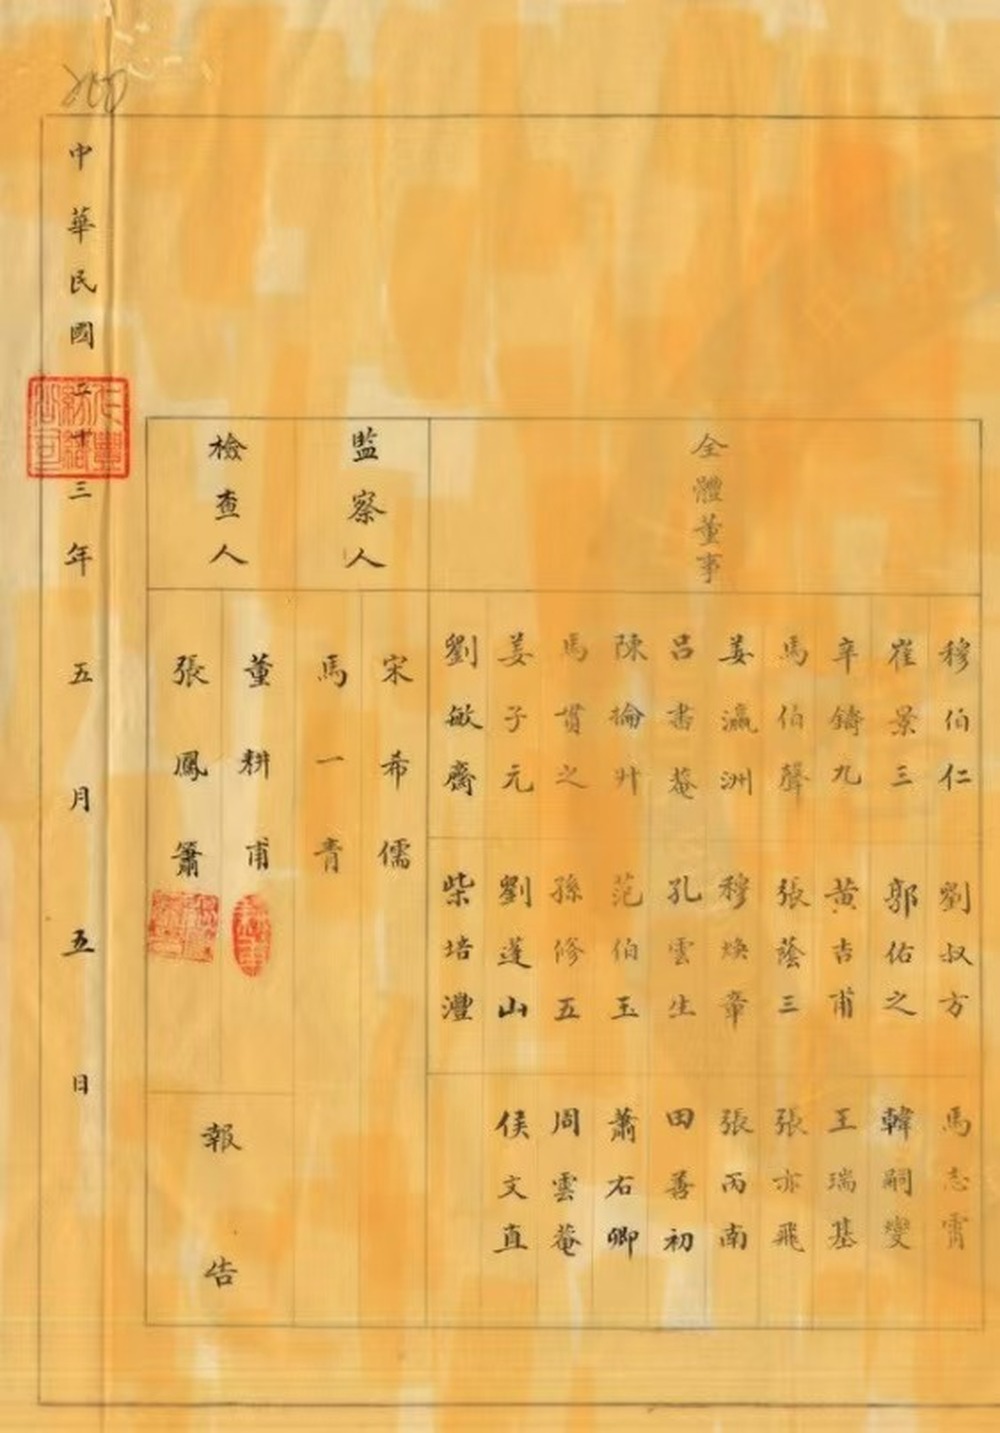 全體董事
穆伯仁
崔景三
辛鑄九
馬伯聲
姜瀛洲
呂書菴
陳掄升
馬貫之
姜子元
劉敏齋
劉叔方
郭佑之
黃吉甫
張蔭三
穆煥章
孔雲生
范伯玉
孫修五
劉蓬山
柴培灃
馬志霄
韓嗣燮
王瑞基
張亦飛
張丙南
田善初
蕭右卿
周雲菴
侯文直
監察人
宋希儒
馬一青
檢查人
董耕甫
張鳳簫
報告
中華民國三十三年五月五日